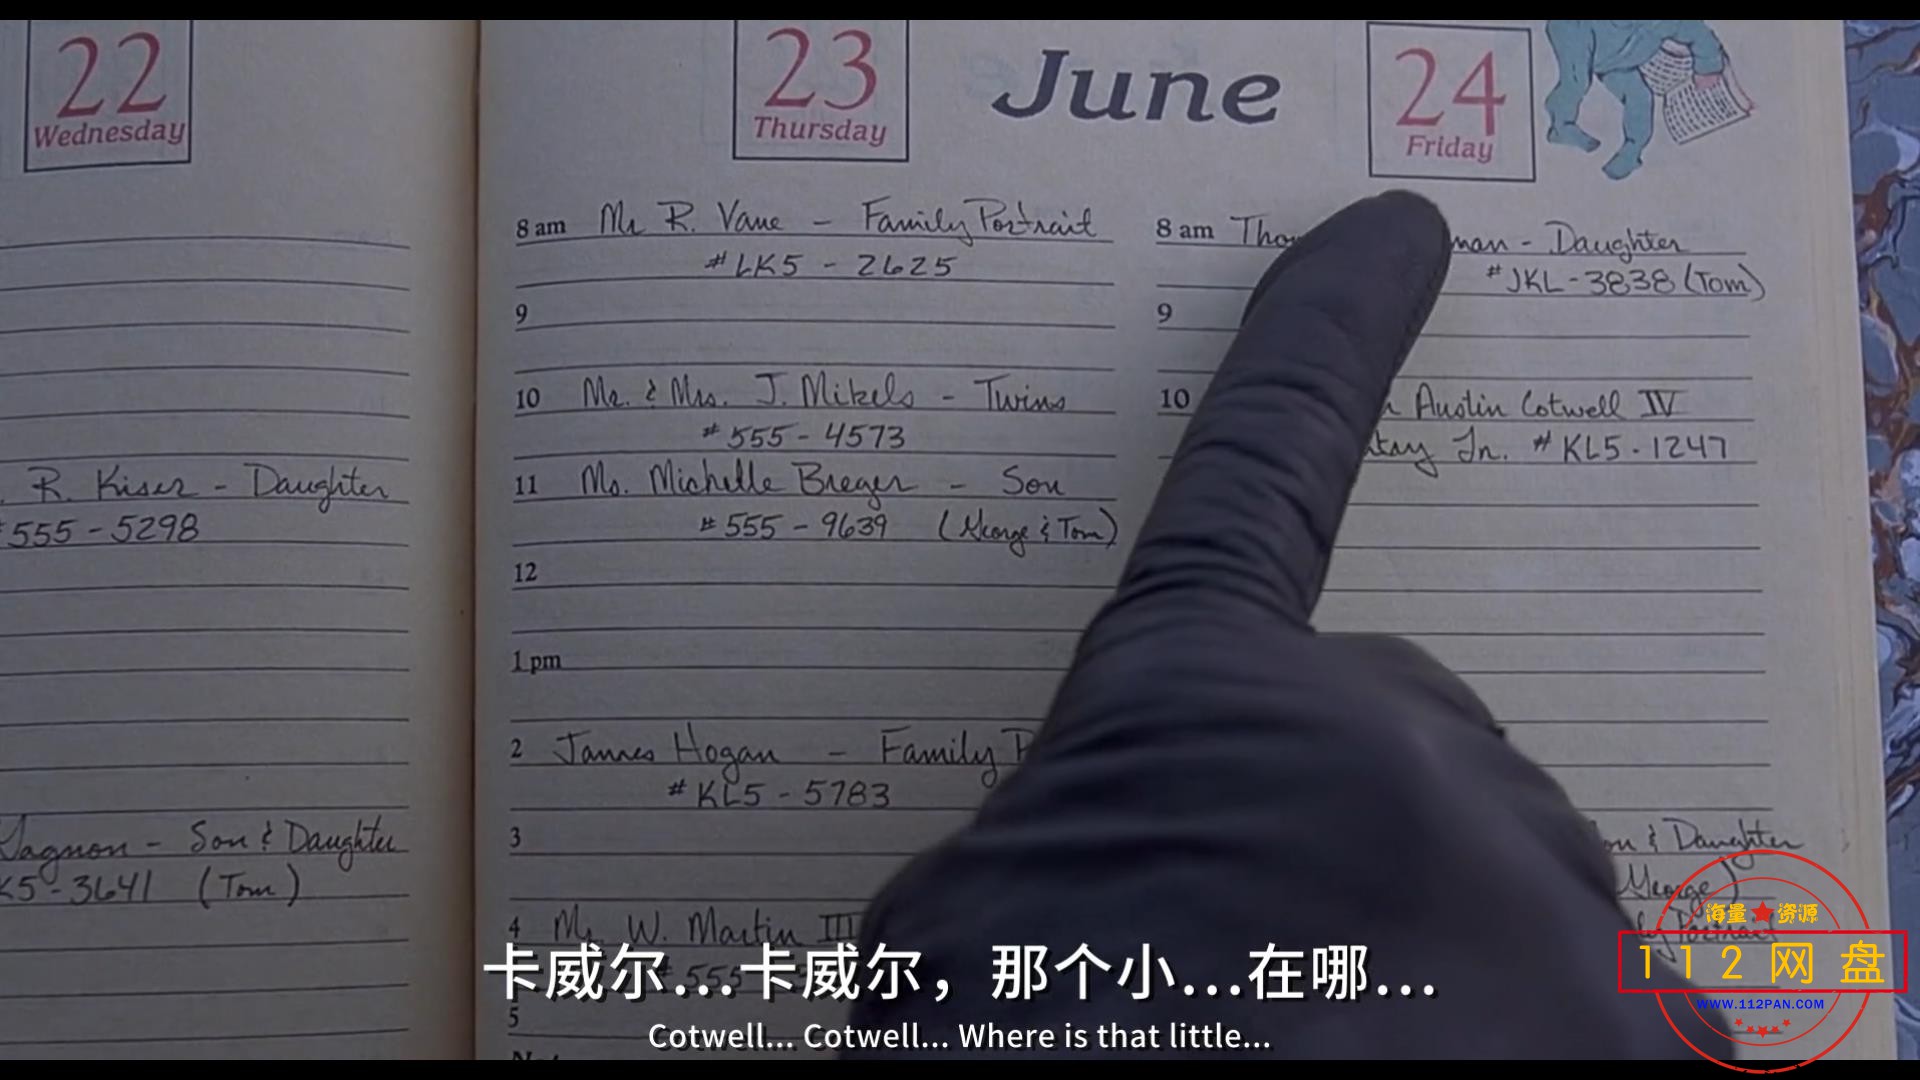 22
Wednesday
R. Kiser - Daughter
555-5298
Gagnon - Son & Daughter
K5-3641 (Tom)
23
Thursday
June
8 am Mr R. Vane - Family Portrait
#LK5 - 2625
9
10 Mr. & Mrs. J. Mikels - Twins
#555-4573
11 Ms. Michelle Breger - Son
#555-9639 (George & Tom)
12
1 pm
2 James Hogan - Family P
#KL5-5783
3
4 Mr. W. Martin III
555
5
24
Friday
8 am Tho man - Daughter
#JKL-3838 (Tom)
9
10 Austin Cotwell IV
Jr. #KL5-1247
on & Daughter
George)
Portrait
卡威尔...卡威尔，那个小...在哪...
Cotwell... Cotwell... Where is that little...
海量★资源
112网盘
WWW.112PAN.COM